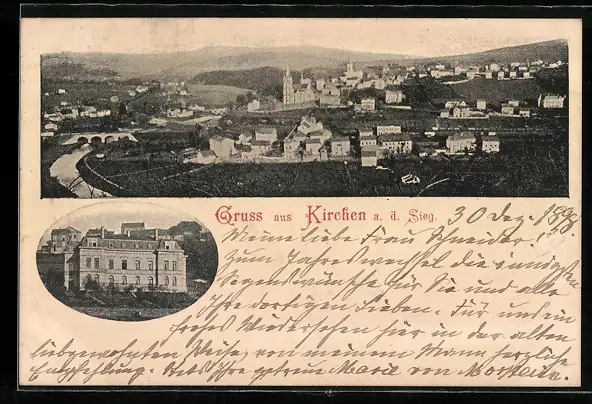 Gruss aus Kirchen a. d. Sieg.
30 Dez. 1898.
Meine liebe Frau Schneider!
Zum Jahreswechsel die innigsten
Segenswünsche für Sie und alle
Ihre dortigen Lieben. Für unsein
frohes Wiedersehen hier in der alten
liebgewohnten Weise, von meinem Mann herzliche
Empfehlung. Stets Ihre getreue Marie von